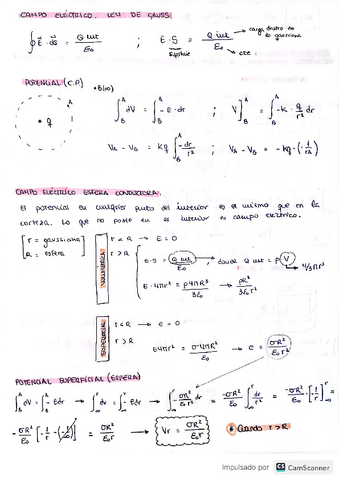 CAMPO ELÉCTRICO. LEY DE GAUSS
∮ E · ds = Q int / ε₀ ; E·S = Q int / ε₀ → carga dentro de la gaussiana
→ cte.
POTENCIAL (C.P)
• B(∞)
A
• q
∫_B^A dV = ∫_B^A -E·dr ; V]_B^A = ∫_B^A -K · q/r² dr
V_A - V_B = Kq ∫_B^A -dr/r² ; V_A - V_B = -Kq · (-1/r_A)
CAMPO ELÉCTRICO ESFERA CONDUCTORA.
El potencial en cualquier punto del interior es el mismo que en la
corteza. Lo que no posee en su interior es campo eléctrico.
r = gaussiana
R = esfera
VOLUMÉTRICA
r < R → E = 0
r > R
E·S = Q int / ε₀ donde Q int = ρ V → 4/3πR³
E·4πr² = ρ4πR³ / 3ε₀ → ρR³ / 3ε₀r²
SUPERFICIAL
r < R → e = 0
r > R
E4πr² = σ·4πR² / ε₀ → e = σR² / ε₀r²
POTENCIAL SUPERFICIAL (ESFERA)
∫_B^A dV = ∫_B^A -Edr → ∫_∞^r dr = ∫_∞^r -Edr → ∫_∞^r -σR²/ε₀r² dr = -σR²/ε₀ ∫_∞^r dr/r² = -σR²/ε₀ · [1/r]_∞^r =
-σR²/ε₀ [-1/r - (-1/∞)] = σR²/ε₀r → Vr = σR²/ε₀r
Cuando r > R
Impulsado por CS CamScanner